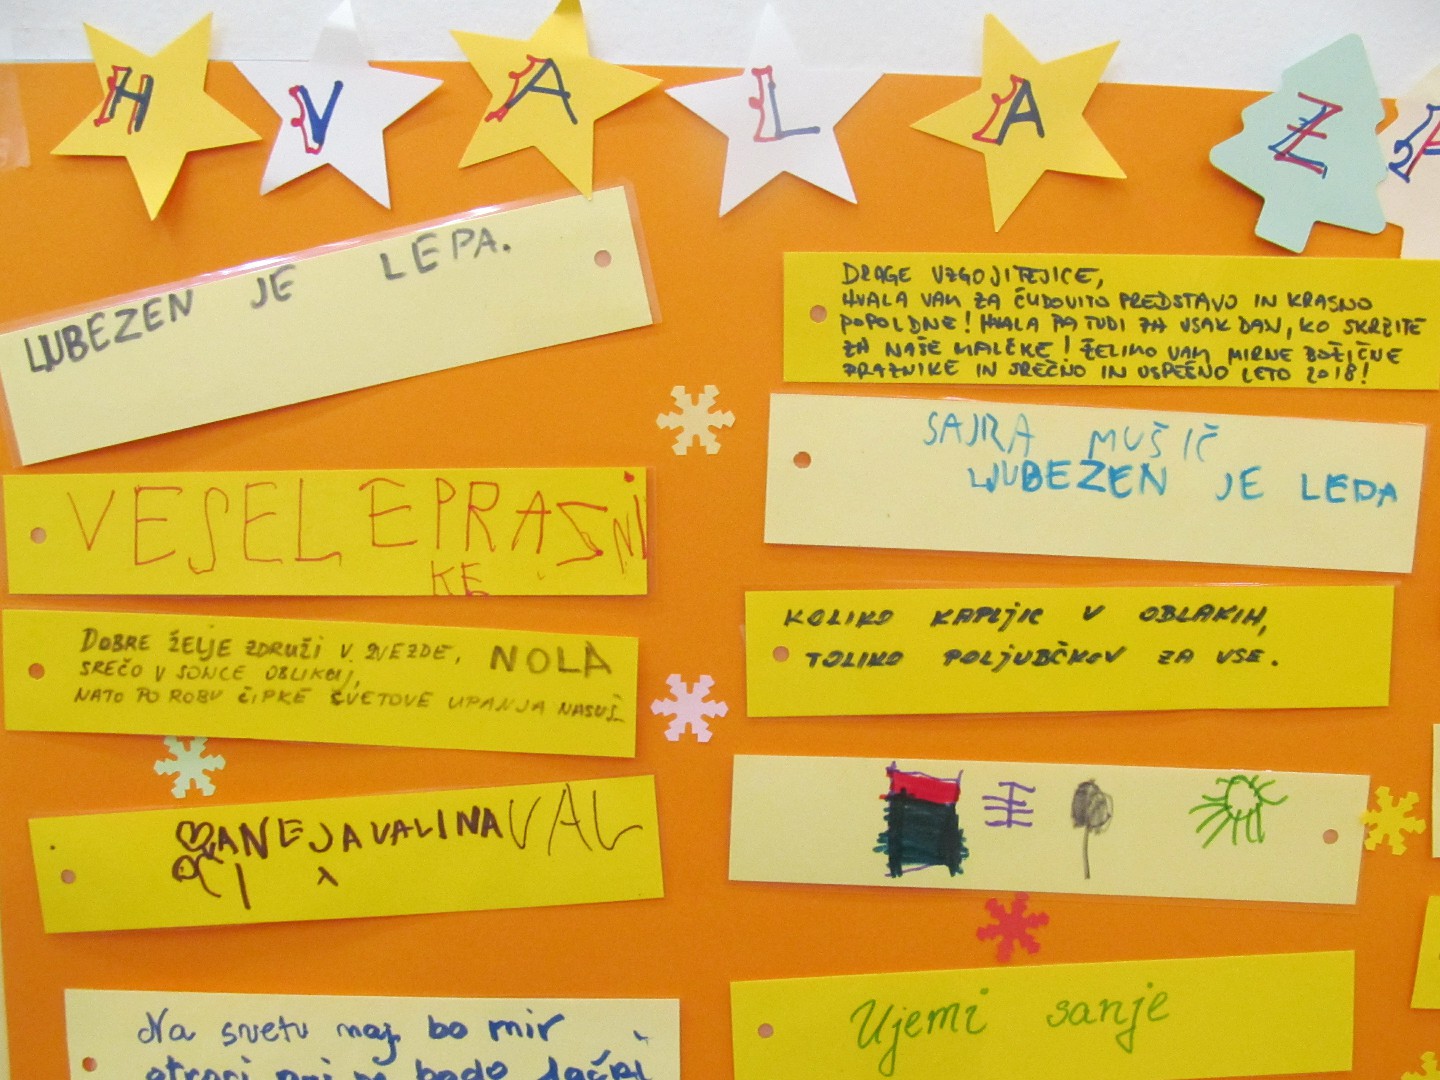 HVALA ZA
LJUBEZEN JE LEPA.
VESEL EPRASNI
KE
DOBRE ŽELJE ZDRUŽI V ZVEZDE, NOLA
SREČO V SONCE OBLIKUJ,
NATO PO ROBU ČIPKE CVETOVE UPANJA NASUJ.
ANEJAVALINAVAL
Na svetu naj bo mir
otroci naj pa bodo
DRAGE VZGOJITELJICE,
HVALA VAM ZA ČUDOVITO PREDSTAVO IN KRASNO
POPOLDNE! HVALA PA TUDI ZA VSAK DAN, KO SKRBITE
ZA NAŠE MALČKE! ŽELIMO VAM MIRNE BOŽIČNE
PRAZNIKE IN SREČNO IN USPEŠNO LETO 2018!
SAJRA MUŠIČ
LJUBEZEN JE LEPA
KOLIKO KAPLJIC V OBLAKIH,
TOLIKO POLJUBČKOV ZA VSE.
Ujemi sanje